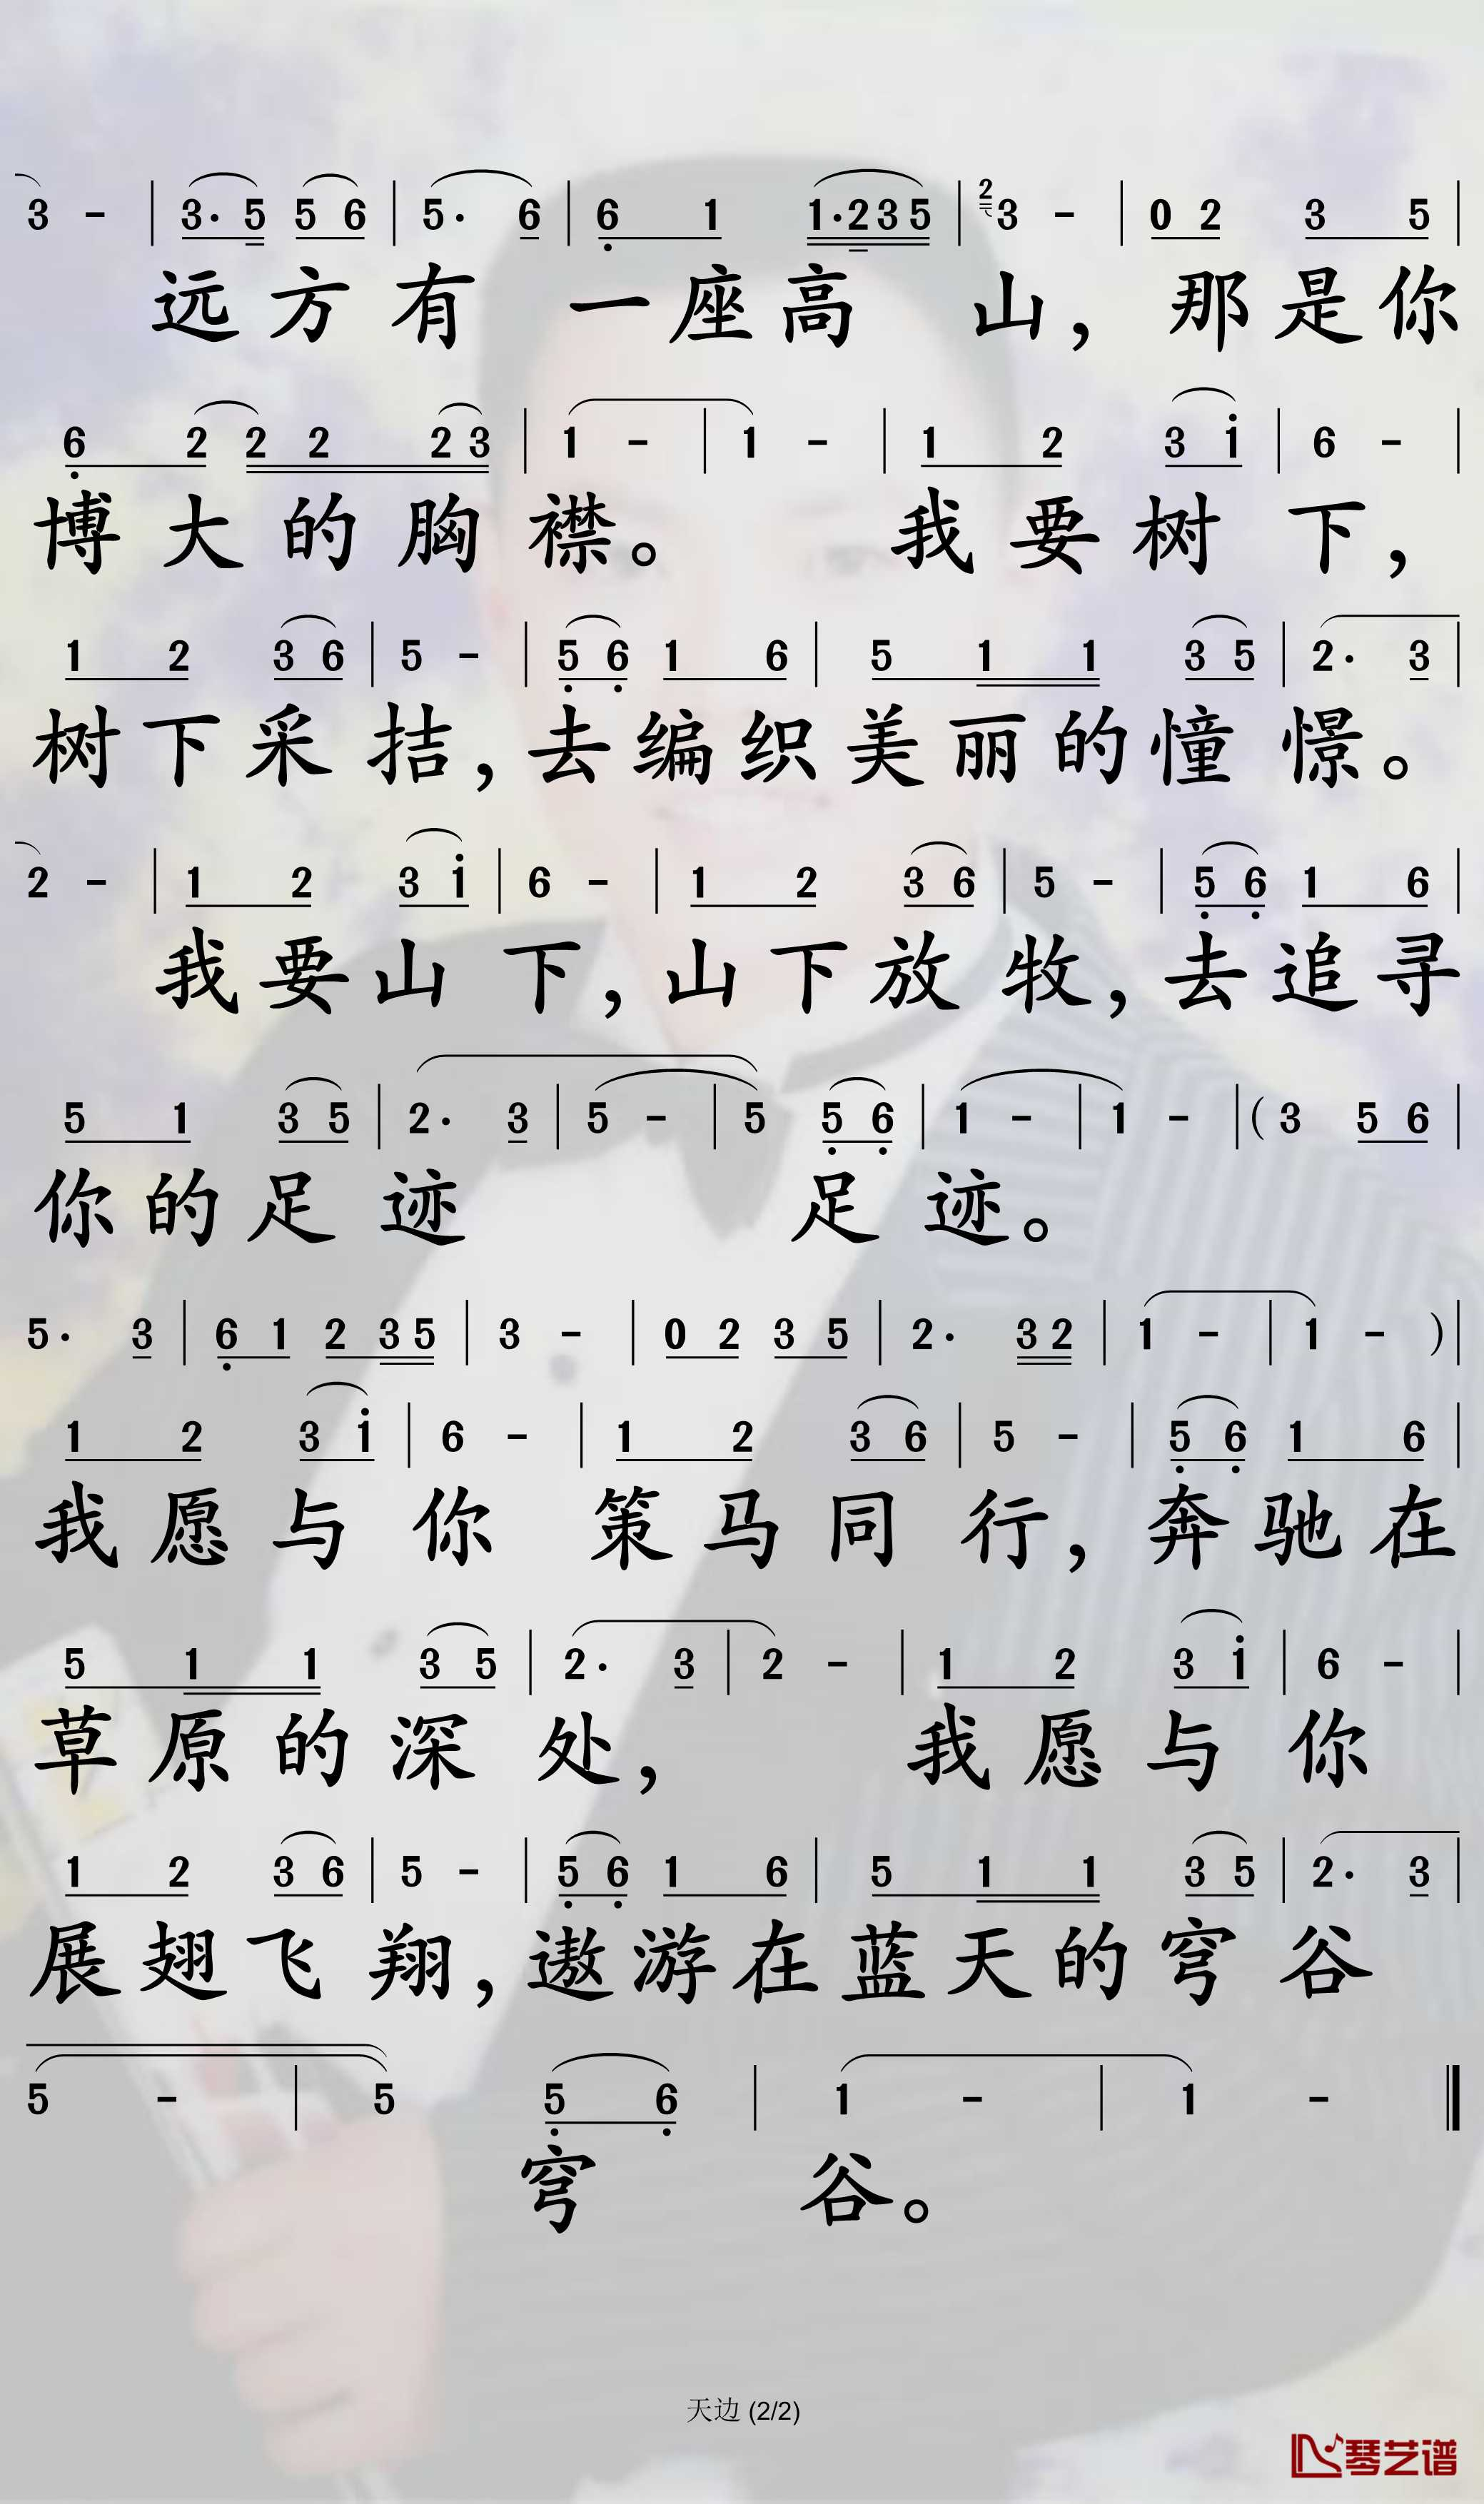 3 - | 3· 5 5 6 | 5· 6 | 6 1 1·2 3 5 | 2 3 - | 0 2 3 5 |
远方有一座高山，那是你
6 2 2 2 2 3 | 1 - | 1 - | 1 2 3 i | 6 - |
博大的胸襟。我要树下，
1 2 3 6 | 5 - | 5 6 1 6 | 5 1 1 3 5 | 2· 3 |
树下采拮，去编织美丽的憧憬。
2 - | 1 2 3 i | 6 - | 1 2 3 6 | 5 - | 5 6 1 6 |
我要山下，山下放牧，去追寻
5 1 3 5 | 2· 3 | 5 - | 5 5 6 | 1 - | 1 - | (3 5 6 |
你的足迹 足迹。
5· 3 | 6 1 2 3 5 | 3 - | 0 2 3 5 | 2· 3 2 | 1 - | 1 - ) |
1 2 3 i | 6 - | 1 2 3 6 | 5 - | 5 6 1 6 |
我愿与你 策马同行，奔驰在
5 1 1 3 5 | 2· 3 | 2 - | 1 2 3 i | 6 - |
草原的深处，我愿与你
1 2 3 6 | 5 - | 5 6 1 6 | 5 1 1 3 5 | 2· 3 |
展翅飞翔，遨游在蓝天的穹谷
5 - | 5 5 6 | 1 - | 1 - ‖
穹谷。
天边 (2/2)
琴艺谱